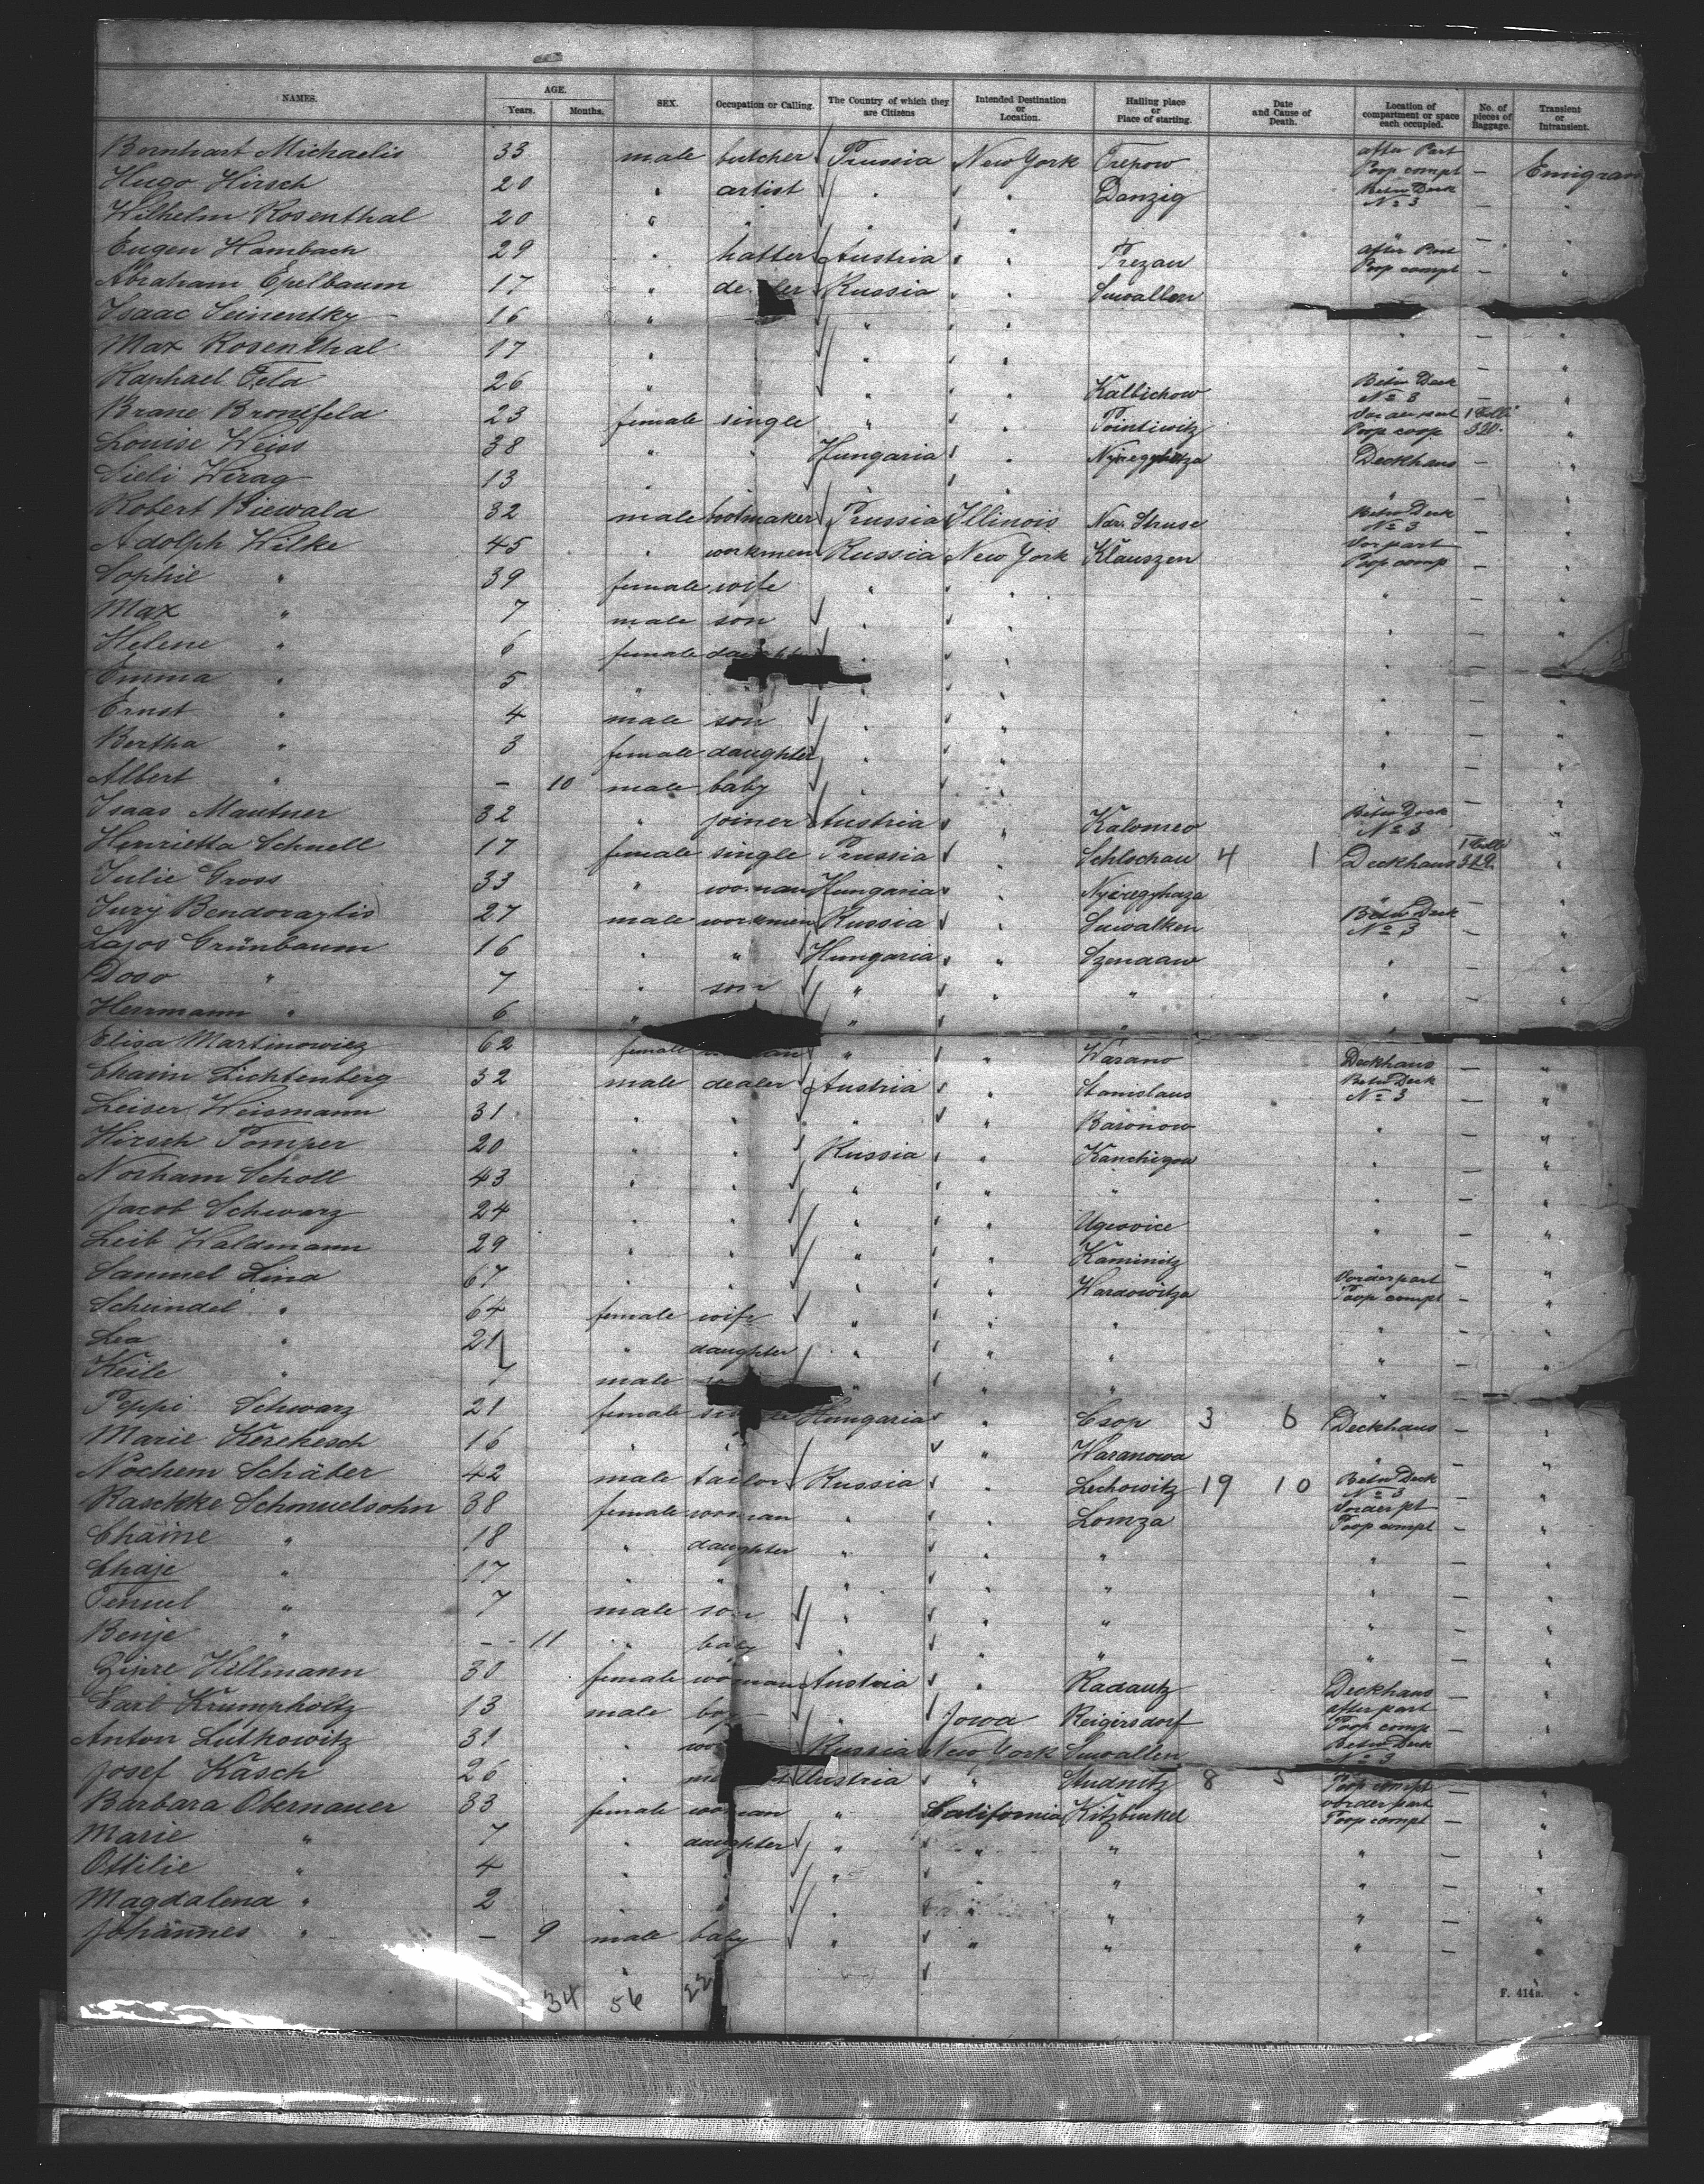 NAMES. AGE. Years. Months. SEX. Occupation or Calling. The Country of which they are Citizens Intended Destination or Location. Hailing place or Place of starting. Date and Cause of Death. Location of compartment or space each occupied. No. of pieces of Baggage. Transient or Intransient.
Bernhart Michaelis 33 male butcher Prussia New York Trepow after Part Poop compt — Emigrant
Hugo Hirsch 20 " artist " " Danzig Betw Deck No 3 — "
Wilhelm Rosenthal 20 " " " " " — "
Eugen Hambach 29 " hatter Austria " Prezau after Part Poop compt — "
Abraham Epelbaum 17 " Russia " Suwallen
Isaac Seinentky 16 " " " " — "
Max Rosenthal 17 " " " " — "
Raphael Feld 26 " " " Kalbichow Betw Deck No 3 — "
Brane Bronsfeld 23 female single " " Pointiwitz Vorderpart Poop coop 1 Colli 320. "
Louise Weiss 38 " " Hungaria " Nyiregyhaza Deckhaus — "
Sieli Wirag 13 " " " " " — "
Robert Biewald 32 male hotmaker Prussia Illinois Ndr. Struse Betw Deck No 3 — "
Adolph Wilke 45 " workmen Russia New York Klauszen Vorpart Poop comp — "
Sophie " 39 female wife " " " — "
Max " 7 male son " " — "
Helene " 6 female " " " — "
Emma " 5 " " " " — "
Ernst " 4 male son " " " — "
Bertha " 3 female daughter " " " — "
Albert " — 10 male baby " " — "
Isaas Mautner 32 " joiner Austria " Kalomeo Betw Deck No 3 — "
Henrietta Schnell 17 female single Prussia " Schlochau 4 1 Deckhaus 1 Colli 319. "
Julie Gross 33 " woman Hungaria " Nyiregyhaza " — "
Jury Bendoraytis 27 male workmen Russia " Suwalken Betw Deck No 3 — "
Lajos Grünbaum 16 " " Hungaria " Szendaw " — "
Doso " 7 " son " " " " — "
Herrmann " 6 " " " " "
Elisa Martinowicz 62 female " " Warano Deckhaus — "
Chaim Lichtenberg 32 male dealer Austria " Stanislaus Betw Deck No 3 — "
Leiser Weismann 31 " " " " Baronow " — "
Hirsch Pomper 20 " " Russia " Kanchigow " — "
Norham Scholl 43 " " " " " " — "
Jacob Schwarz 24 " " " " Ugeovice " — "
Leib Waldmann 29 " " " " Kaminitz " — "
Samuel Lind 67 " " " " Wardowitza Vorderpart Poop compt — "
Scheindel " 64 female wife " " " " — "
Lea " 21 " daughter " " " " — "
Keile " 7 male " " " " — "
Peppi Schwarz 21 female Hungaria " Csop 3 6 Deckhaus — "
Marie Kerekesch 16 " " " " Waranowa " — "
Nochem Schäter 42 male tailor Russia " Lechowitz 19 10 Betw Deck No 3 — "
Raschke Schmuelsohn 38 female woman " " Lomza Vorderpt Poop compt — "
Chaine " 18 " daughter " " " " — "
Chaje " 17 " " " " " " — "
Temuel " 7 male son " " " " — "
Benje " — 11 " baby " " " " — "
Zipre Hillmann 30 female woman Austria " Radautz Deckhaus — "
Carl Krumpholtz 13 male boy " Iowa Reigersdorf after part Poop comp — "
Anton Lutkowitz 31 " Russia New York Suwallen Betw Deck No 3
Josef Kasch 26 " Austria " Studnitz 8 5 Poop compt — "
Barbara Obernauer 33 female woman " California Kitzbuhel vorderpart Poop compt — "
Marie " 7 " daughter " " " " — "
Ottilie " 4 " " " " " " — "
Magdalena " 2 " " " " " — "
Johannes " — 9 male baby " " " " — "
34 56 22
F. 414a.